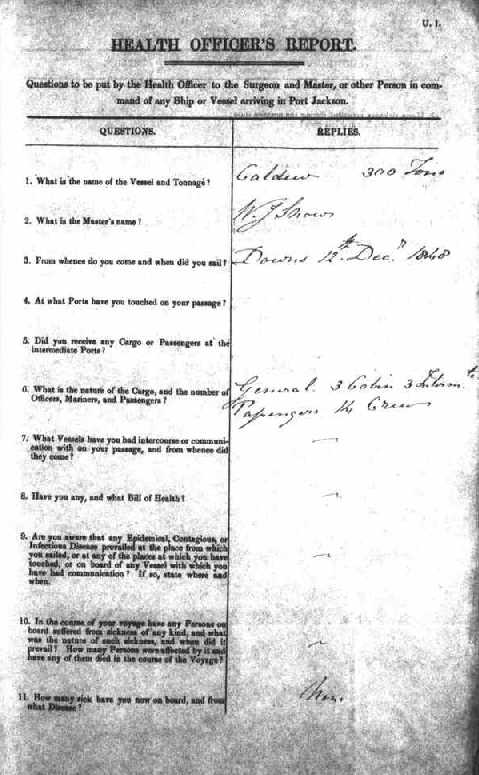 U. 1.
HEALTH OFFICER'S REPORT.
Questions to be put by the Health Officer to the Surgeon and Master, or other Person in com-
mand of any Ship or Vessel arriving in Port Jackson.
QUESTIONS. REPLIES.
1. What is the name of the Vessel and Tonnage? Caldew 300 Tons
2. What is the Master's name? W. J.
3. From whence do you come and when did you sail? Downs 12th Decr 1848
4. At what Ports have you touched on your passage?
5. Did you receive any Cargo or Passengers at the
intermediate Ports?
6. What is the nature of the Cargo, and the number of
Officers, Mariners, and Passengers?
General. 3 Cabin 3 Interm
Passengers 14 Crew
7. What Vessels have you had intercourse or communi-
cation with on your passage, and from whence did
they come? —
8. Have you any, and what Bill of Health? —
9. Are you aware that any Epidemical, Contagious, or
Infectious Disease prevailed at the place from which
you sailed, or at any of the places at which you have
touched, or on board of any Vessel with which you
have had communication? If so, state where and
when. —
10. In the course of your voyage have any Persons on
board suffered from sickness of any kind, and what
was the nature of such sickness, and when did it
prevail? How many Persons were affected by it and
have any of them died in the course of the Voyage? —
11. How many sick have you now on board, and from
what Disease?